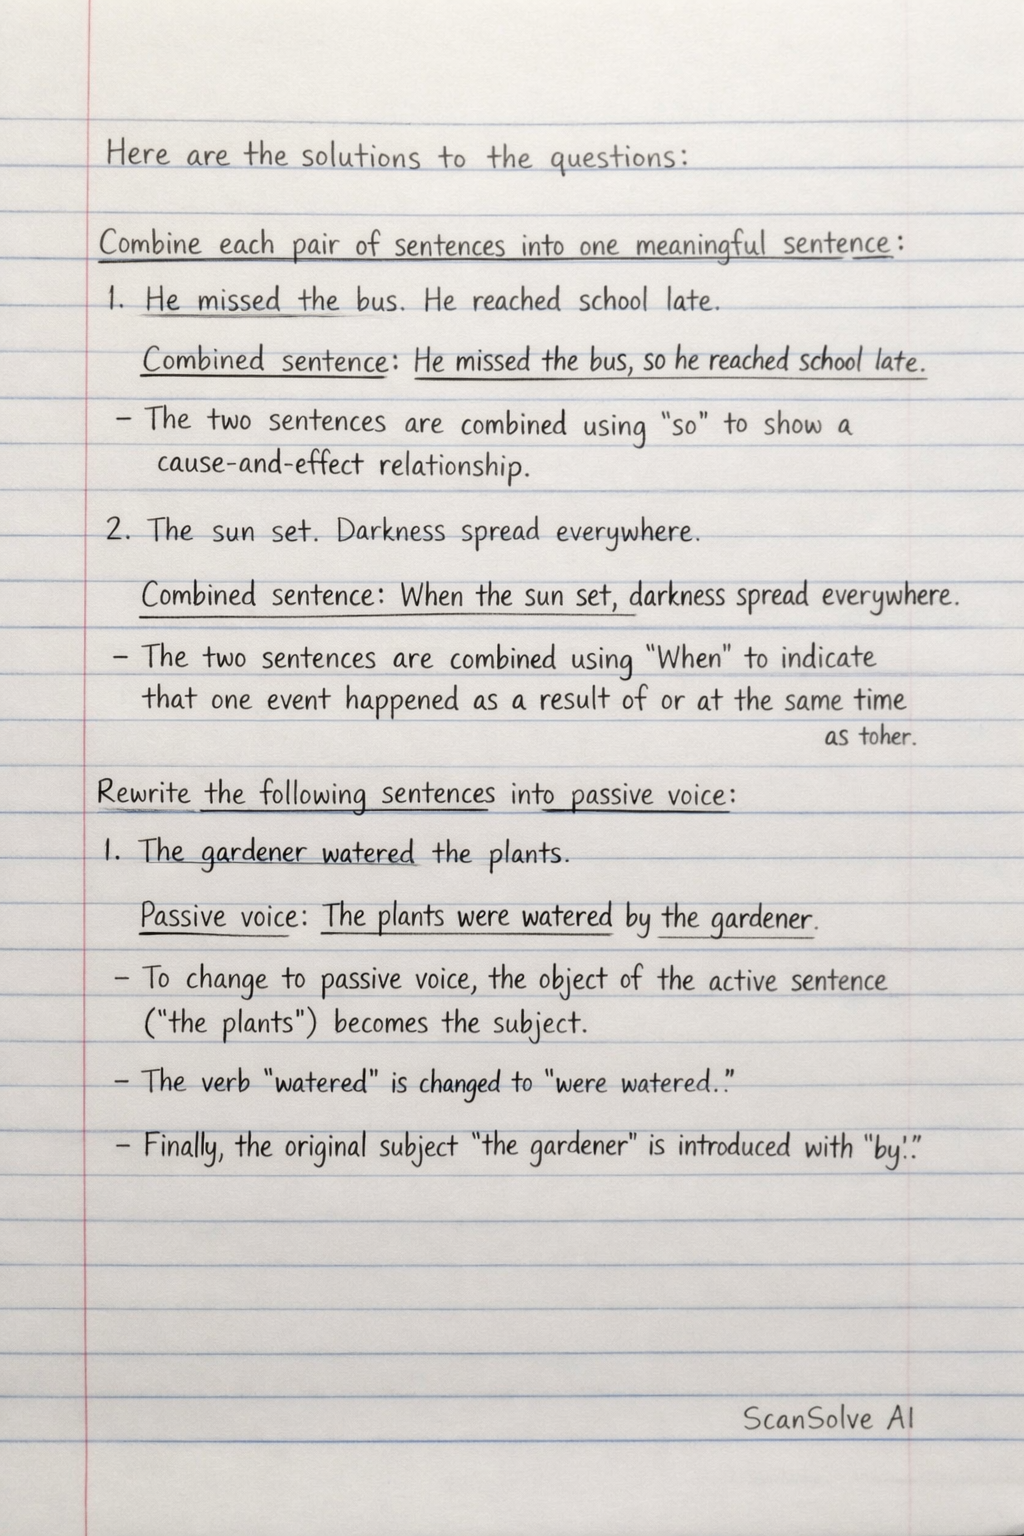 Here are the solutions to the questions:
Combine each pair of sentences into one meaningful sentence:
1. He missed the bus. He reached school late.
Combined sentence: He missed the bus, so he reached school late.
– The two sentences are combined using "so" to show a
cause-and-effect relationship.
2. The sun set. Darkness spread everywhere.
Combined sentence: When the sun set, darkness spread everywhere.
– The two sentences are combined using "When" to indicate
that one event happened as a result of or at the same time
as toher.
Rewrite the following sentences into passive voice:
1. The gardener watered the plants.
Passive voice: The plants were watered by the gardener.
– To change to passive voice, the object of the active sentence
("the plants") becomes the subject.
– The verb "watered" is changed to "were watered.."
– Finally, the original subject "the gardener" is introduced with "by'.."
ScanSolve AI